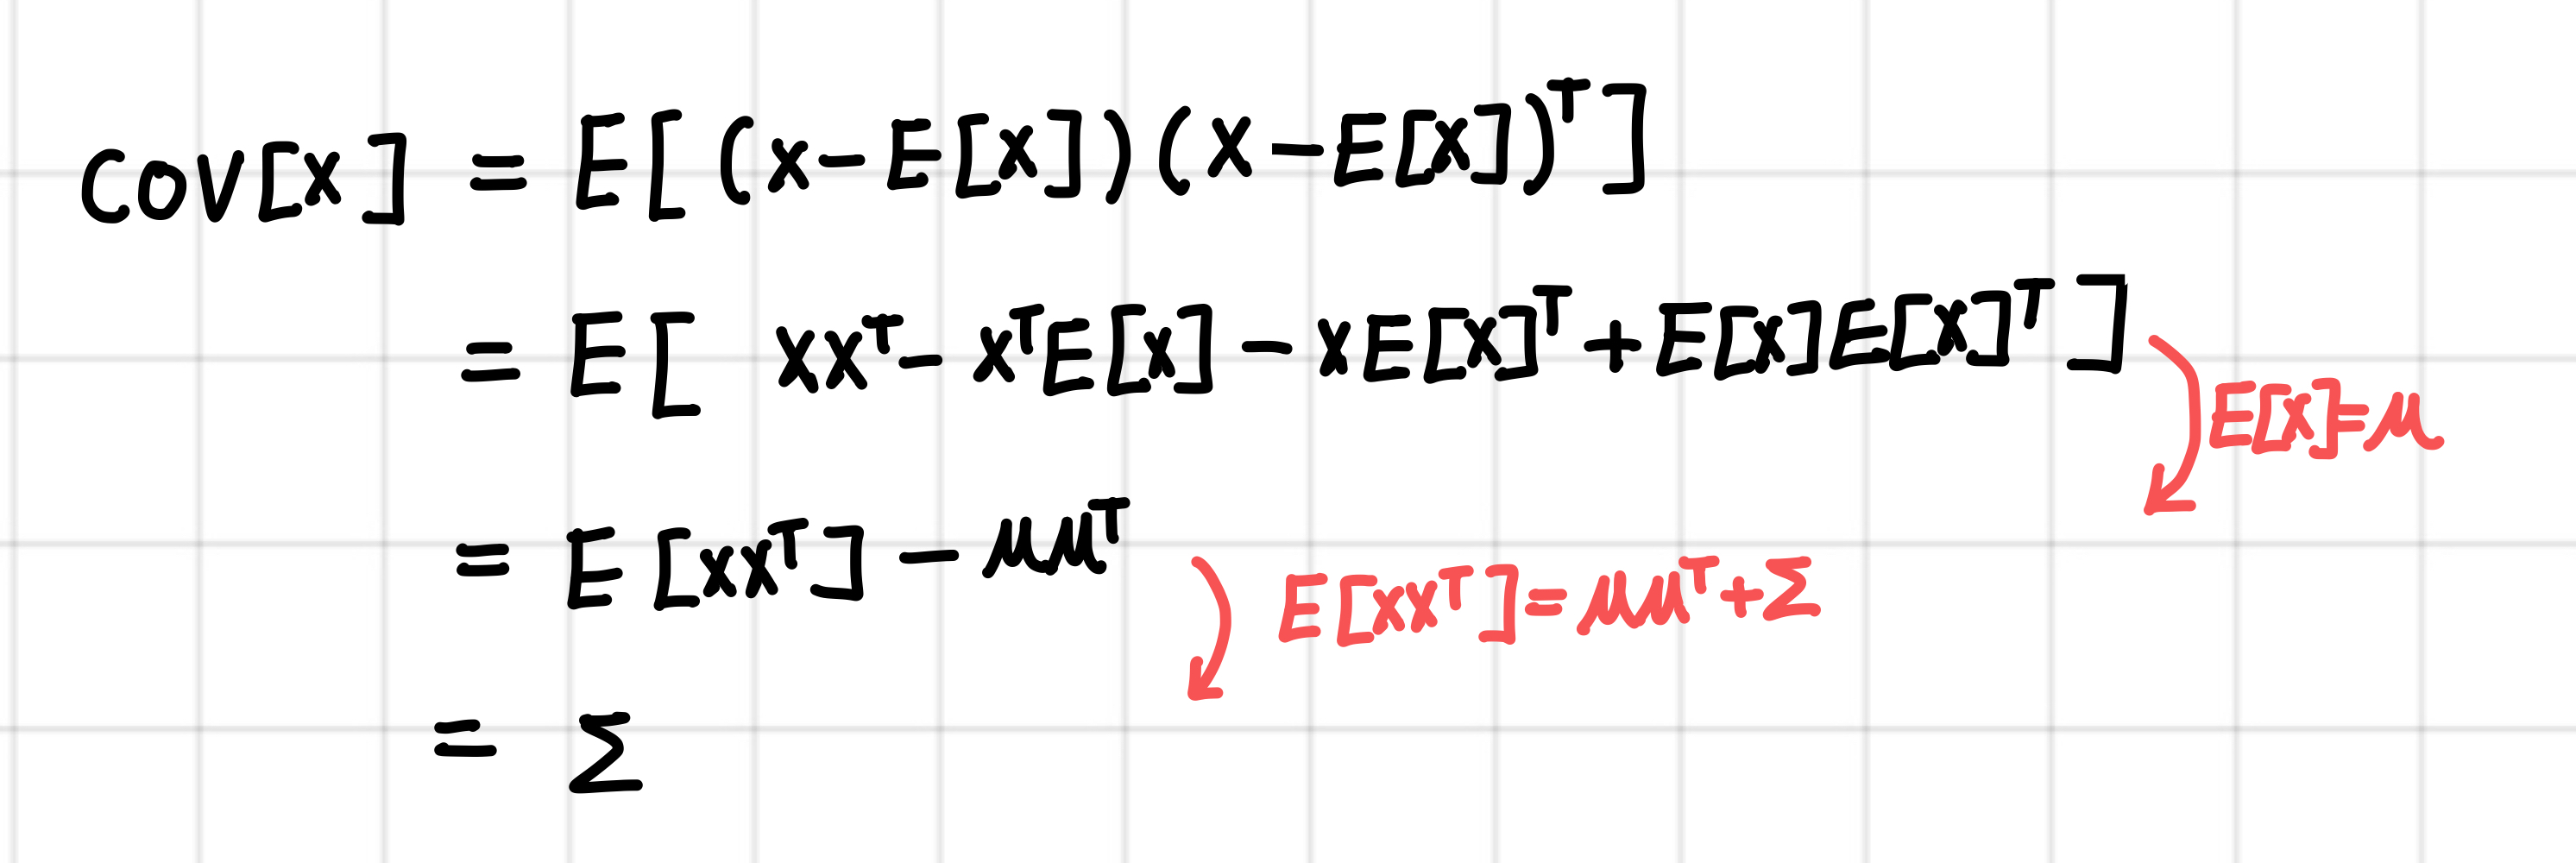 COV[x] = E[(x-E[x])(x-E[x])ᵀ]
= E[ xxᵀ - xᵀE[x] - xE[x]ᵀ + E[x]E[x]ᵀ ]
E[x]=μ
= E[xxᵀ] - μμᵀ
E[xxᵀ]=μμᵀ+Σ
= Σ